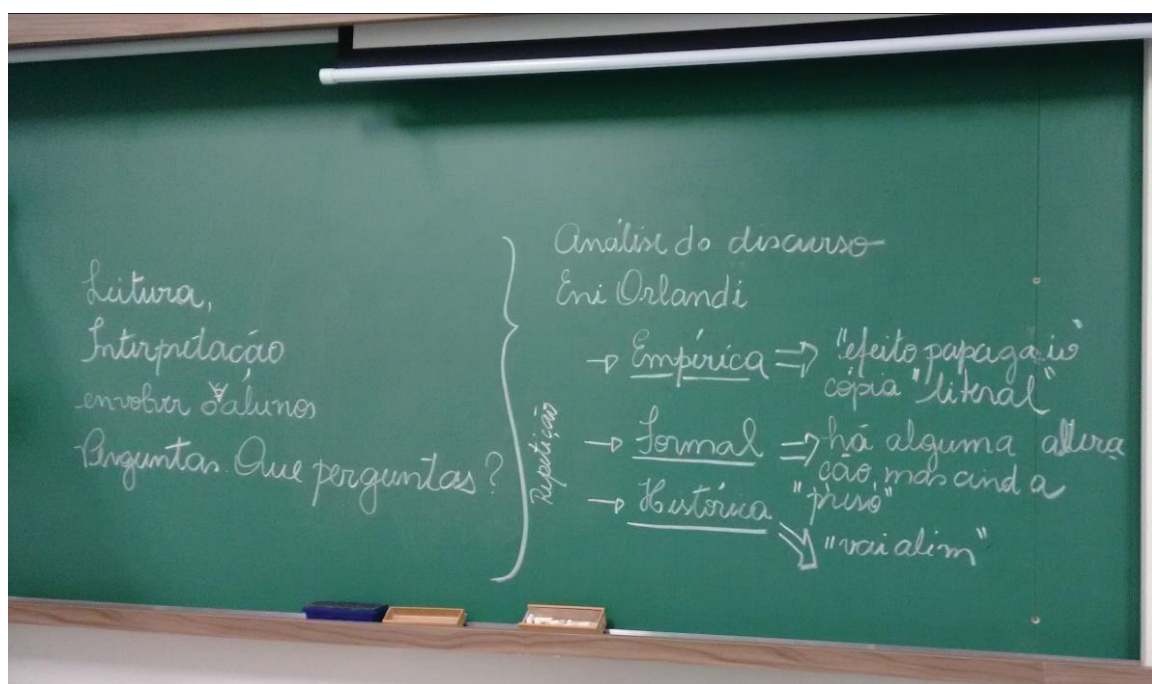 Leitura,
Interpretação
envolver os alunos
Perguntas. Que perguntas?
Análise do discurso
Eni Orlandi
Repetição
→ Empírica ⇒ "efeito papagaio"
cópia "literal"
→ Formal ⇒ há alguma altera
ção, mas ainda
"preso"
→ Histórica ⇒ "vai além"